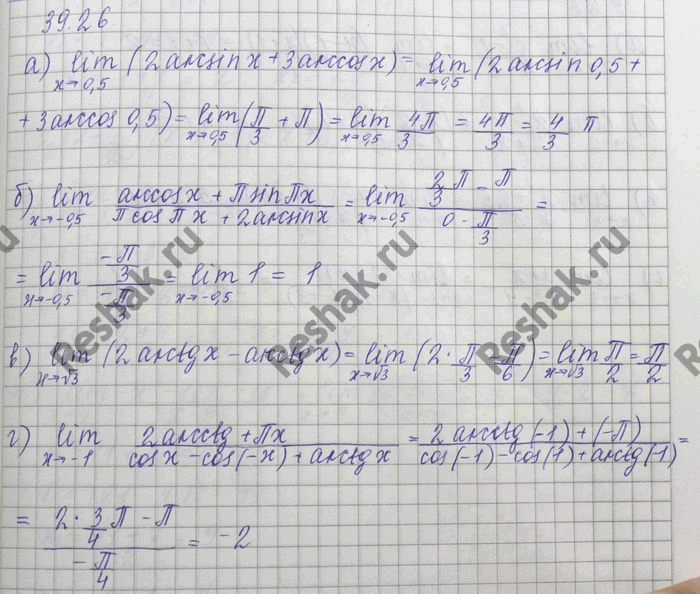 39.26
а) lim x→0,5 (2 arcsin x + 3 arccos x) = lim x→0,5 (2 arcsin 0,5 +
+ 3 arccos 0,5) = lim x→0,5 (π/3 + π) = lim x→0,5 4π/3 = 4π/3 = 4/3 π
б) lim x→-0,5 (arccos x + π sin πx)/(π cos π x + 2 arcsin x) = lim x→-0,5 (2/3 π - π)/(0 - π/3) =
= lim x→-0,5 (-π/3)/(-π/3) = lim x→-0,5 1 = 1
в) lim x→√3 (2 arctg x - arcctg x) = lim x→√3 (2 · π/3 - π/6) = lim x→√3 π/2 = π/2
г) lim x→-1 (2 arcctg + πx)/(cos x - cos(-x) + arctg x) = (2 arcctg(-1) + (-π))/(cos(-1) - cos(1) + arctg(-1)) =
= (2 · 3/4 π - π)/(-π/4) = -2
Reshak.ru
Reshak.ru
Reshak.ru